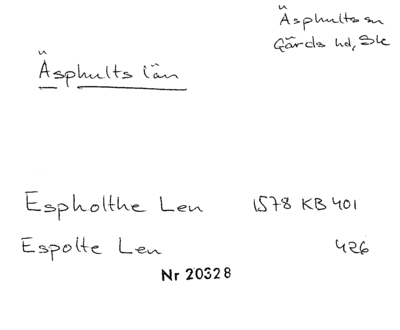 Äsphults sn
Gärds hd, Sk
Äsphults län
Espholthe Len 1578 KB 401
Espolte Len 426
Nr 20328